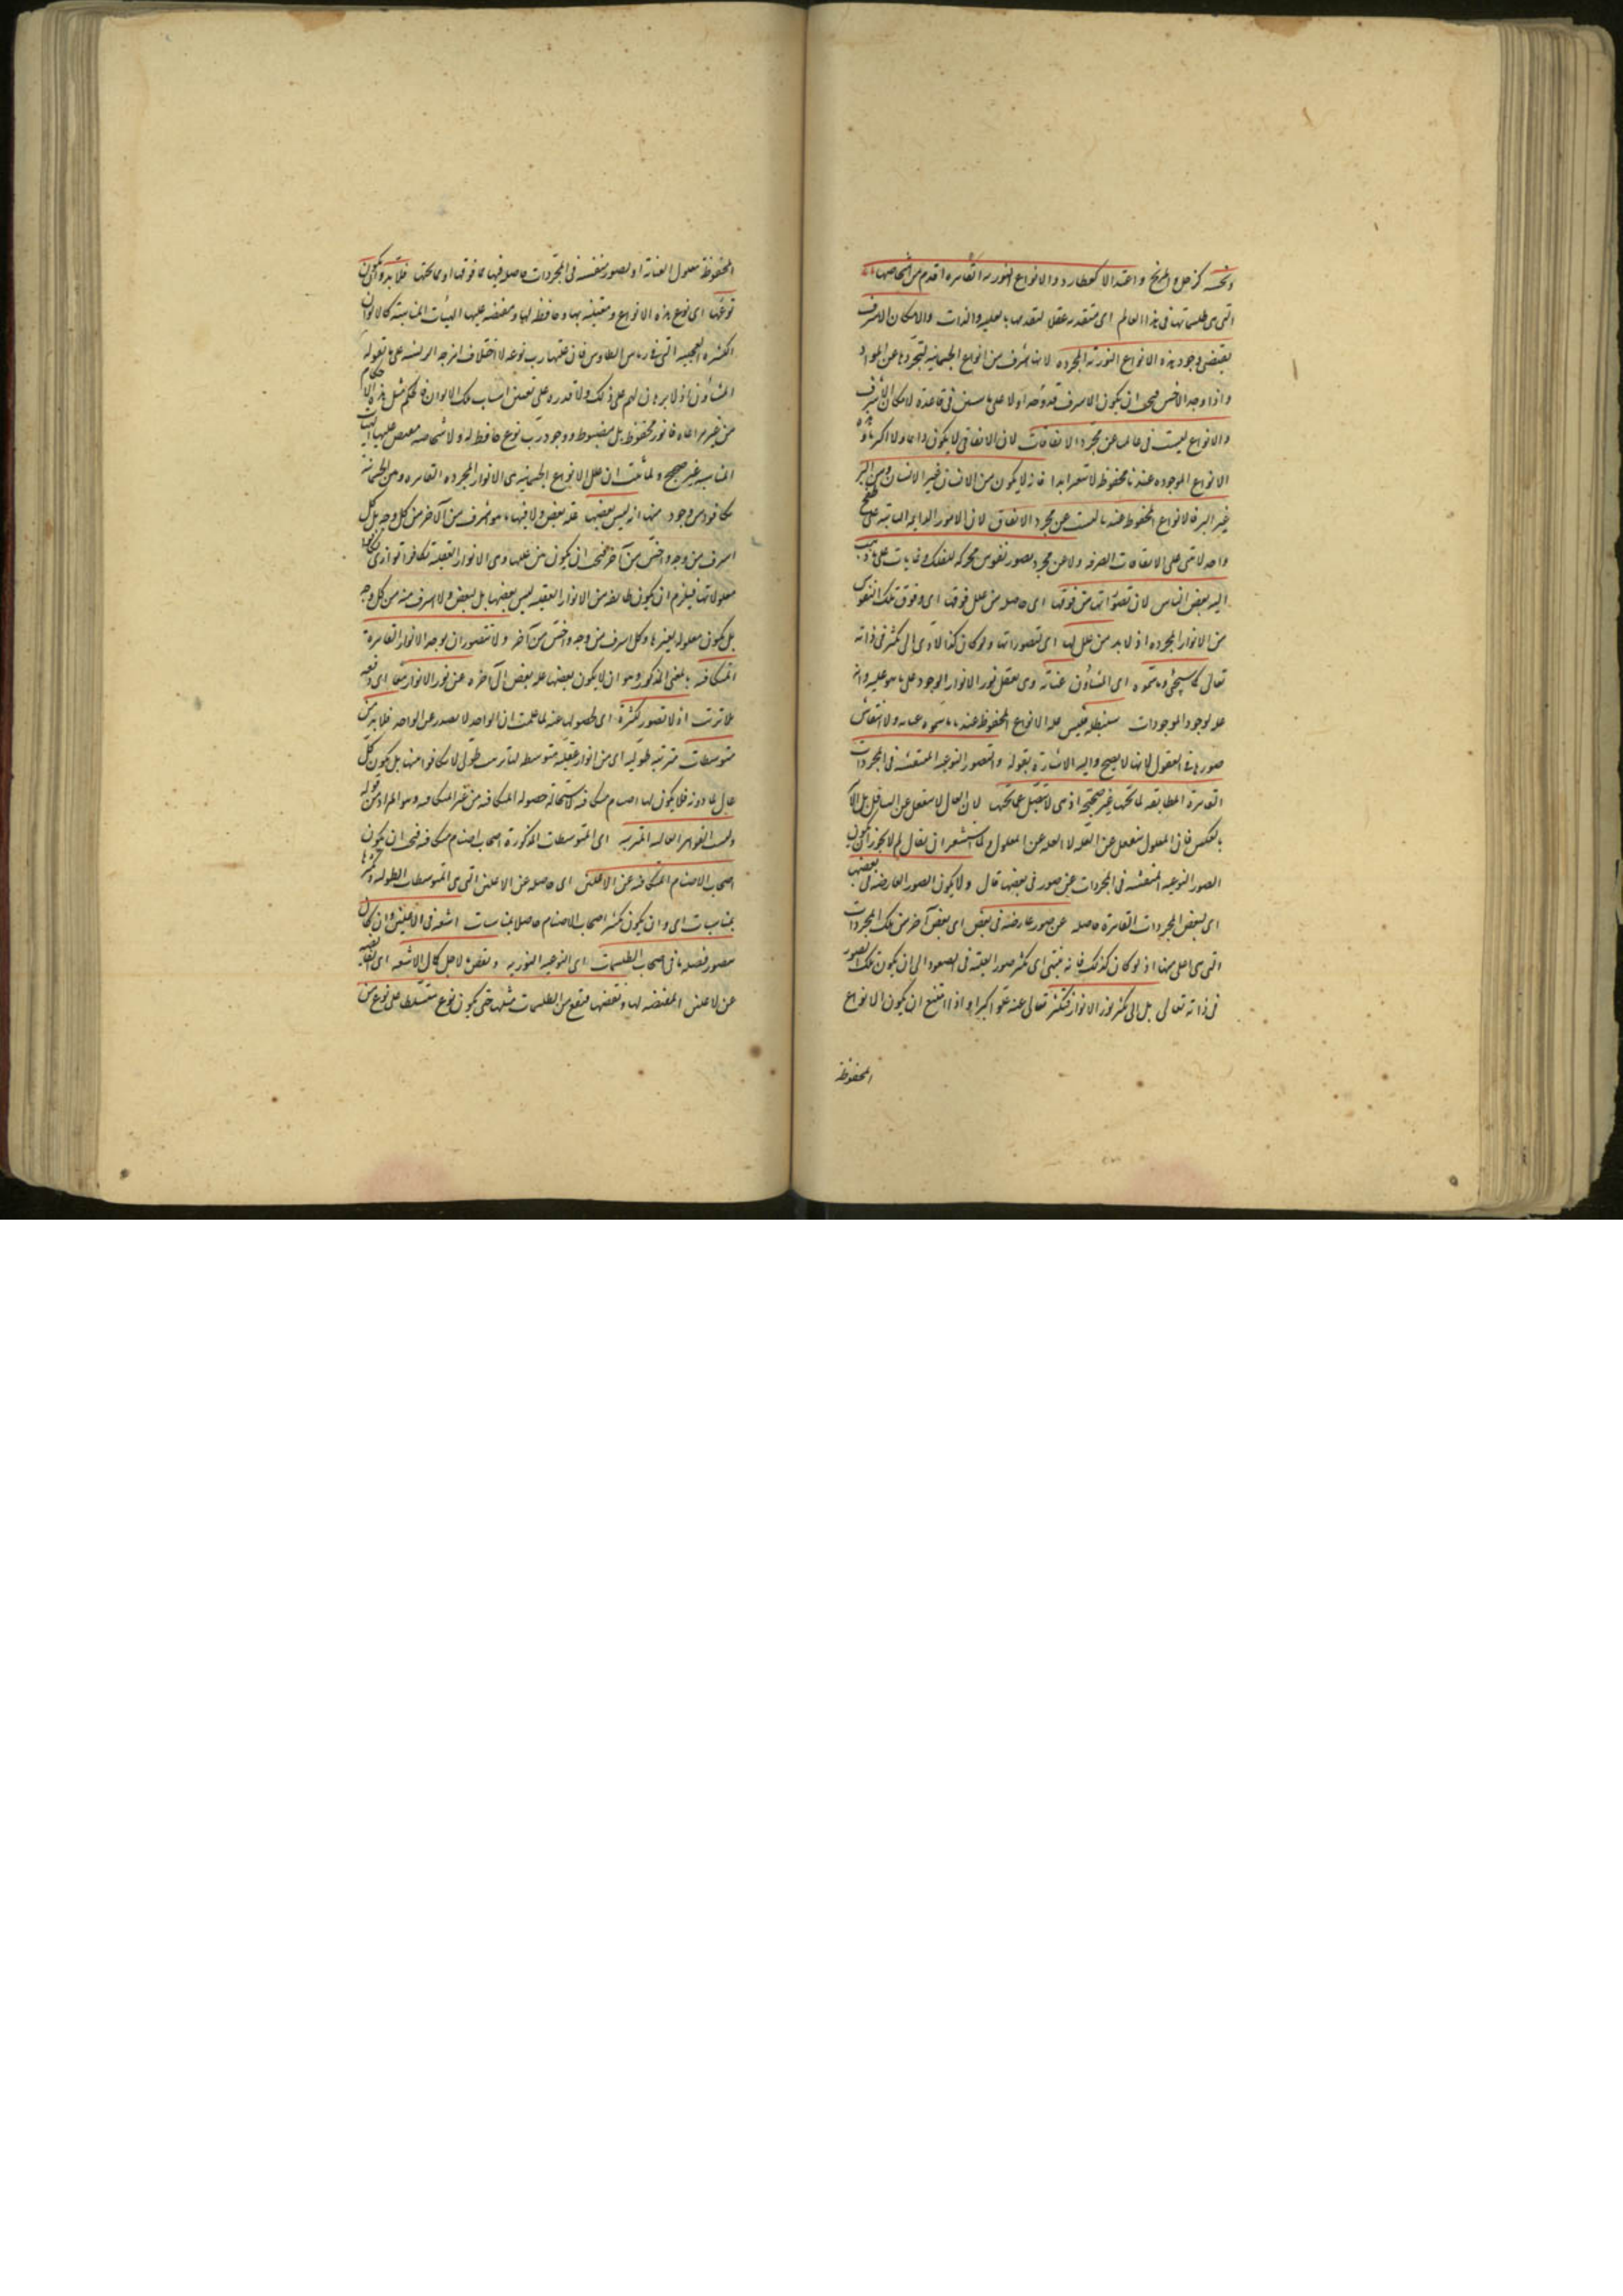 ونحسه كزحل والمريخ واعتدالا كعطارد والانواع النورية القاهرة اقدم من اشخاصها
التى هى طلسماتها فى هذا العالم اى متقدمة عقلا لتقدمها بالعلية والذات والامكان الاشرف
يقتضى وجود هذه الانواع النورية المجردة لانها اشرف من انواع الجسمانية لتجردها عن المواد
واذا وجد الاخس فيجب ان يكون الاشرف قد وجد اولا على ما سبق فى قاعدة الامكان الاشرف
والانواع ليست فى عالمنا عن مجرد الاتفاقات لان الاتفاقى لا يكون دائما ولا اكثريا و
الانواع الموجودة عندنا محفوظة لا تتغير ابدا فانه لا يكون من الانسان غير الانسان ومن البر
غير البر فالانواع المحفوظة عندنا ليست عن مجرد الاتفاق لان الامور الدائمة الثابتة على نهج
واحد لا تبتنى على الاتفاقات الصرفة ولا عن مجرد تصور نفوس محركة للفلك وغايات على ما ذهب
اليه بعض الناس لان تصوراتها من فوقها اى حاصلة من علل فوقها اى وفوق تلك النفوس
من الانوار المجردة اذ لا بد من علل لها اى لتصوراتها ولو كان كذا لادى الى تكثر فى ذاته
تعالى كما سيجئ وما سموه اى المشاؤون عناية وهى تعقل نور الانوار الوجود على ما هو عليه وانه
علة لوجود الموجودات سنبطله فليس علة الانواع المحفوظة عندنا ما سموه عناية ولا انتقاش
صورها فى العقول لانها لا يصح واليه الاشارة بقوله والصور النوعية المنتقشة فى المجردات
القاهرة المطابقة لما تحتها غير صحيحة اذ هى لا تنفعل عما تحتها لان العالى لا ينفعل عن السافل بل الامر
بالعكس فان المعلول منفعل عن العلة لا العلة عن المعلول ولما استشعر ان يقال لم لا يجوز ان يكون
الصور النوعية المنتقشة فى المجردات عن صور فى بعضها قال ولا يكون الصور العارضة فى بعضها
اى لبعض المجردات القاهرة حاصلة عن صور عارضة فى بعض اى بعض آخر من تلك المجردات
التى هى اعلى منها اذ لو كان كذلك فانه ينتهى اى تكثر صور العقلية فى الصعود الى ان يكون تلك الصور
فى ذاته تعالى بل الى تكثر نور الانوار فيتكثر تعالى عنه علوا كبيرا واذا امتنع ان يكون الانواع
المحفوظة
المحفوظة معلول العناية او لصور منتقشة فى المجردات حاصلة فيها مما فوقها او مما تحتها فلا بد وان يكون
نوعها اى نوع هذه الانواع ومعتنية بها وحافظة لها ومفيضة عليها الهيئات المناسبة كالالوان
الكثيرة العجيبة التى فى رياش الطاوس فان علتها رب نوعه لا اختلاف امزجة الريشة على ما تقوله
المشاؤن اذ لا برهان لهم على ذلك ولا قدرة على تعيين اسباب تلك الالوان فالحكم بمثل هذه الاحكام
من غير مراعاة قانون محفوظ بل مضبوط ووجود رب نوع حافظ له ولاشخاصه مفيض عليها الهيئات
المناسبة غير صحيح ولما ثبت ان علل الانواع الجسمانية هى الانوار المجردة القاهرة وهى الجسمانية
تكافؤ من وجود منها انه ليس بعضها علة بعض ولا فيها ما هو اشرف من الآخر من كل وجه بل كل
اشرف من وجه واخس من آخر فيجب ان يكون بين عللها وهى الانوار العقلية تكافؤ اتوازى تكافؤ
معلولاتها فيلزم ان يكون طائفة من الانوار العقلية ليس بعضها بل لبعض ولا اشرف منه من كل وجه
بل يكون معلوله لغيرها وكل اشرف من وجه واخس من آخر ولا يتصور ان يوجد الانوار القاهرة
المتكافئة بالمعنى المذكور وهو ان لا يكون بعضها علة بعض الى آخره عن نور الانوار معا اى دفعة
بلا ترتب اذ لا تصور لكثرة اى لحصولها عنه لما علمت ان الواحد لا يصدر عن الواحد فلا بد من
متوسطات مترتبة طولية اى من انوار عقلية متوسطة لها ترتب طولى لا تكافؤ منها بل يكون كل
عال علة دونه فلا يكون لها اصنام متكافئة لاستحالة حصوله المتكافئة من غير المتكافئة وهو المراد من قوله
وليست القواهر العالية المترتبة اى المتوسطات المذكورة اصحاب اصنام متكافئة فيجب ان يكون
اصحاب الاصنام المتكافئة عن الاعلين اى حاصلة عن الاعلين التى هى المتوسطات الطولية وتكثرها
بمناسبات اى وان يكون تكثر اصحاب الاصنام حاصلا بمناسبات اشعة فى الاعلين وان كان
يتصور فضيلة ما فى اصحاب الطلسمات اى النوعية النورية ونقص لاجل كمال الاشعة اى الفائضة
عن الاعلين المفيضة لها ونقصها فيقع من الطلسمات مثلها حتى يكون نوع متسلط على نوع من